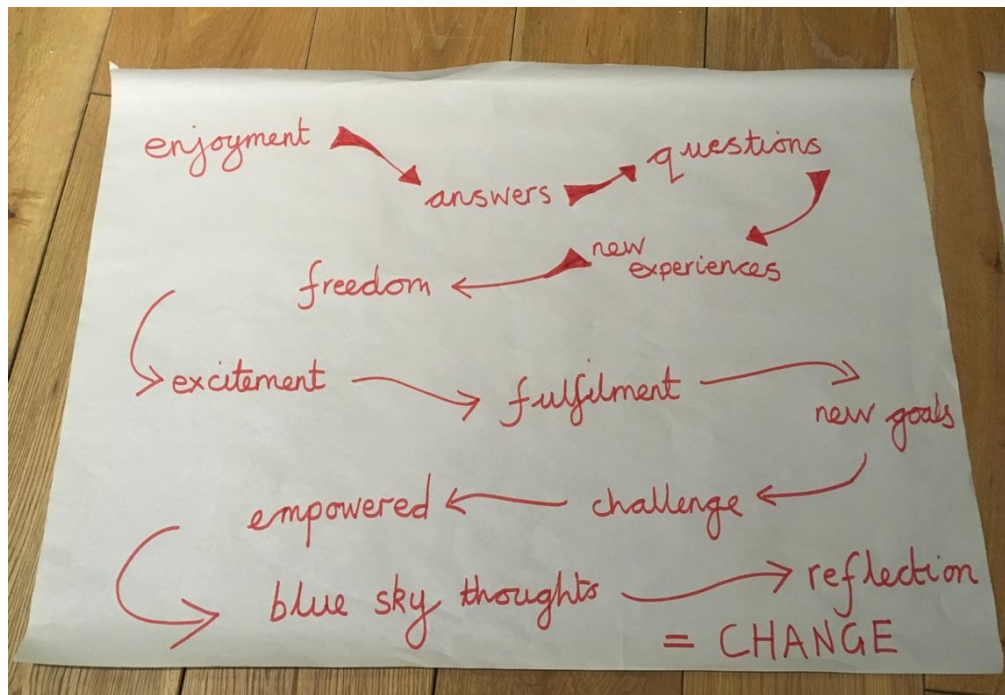 enjoyment
answers
questions
new
experiences
freedom
excitement
fulfilment
new goals
challenge
empowered
blue sky thoughts
reflection
= CHANGE